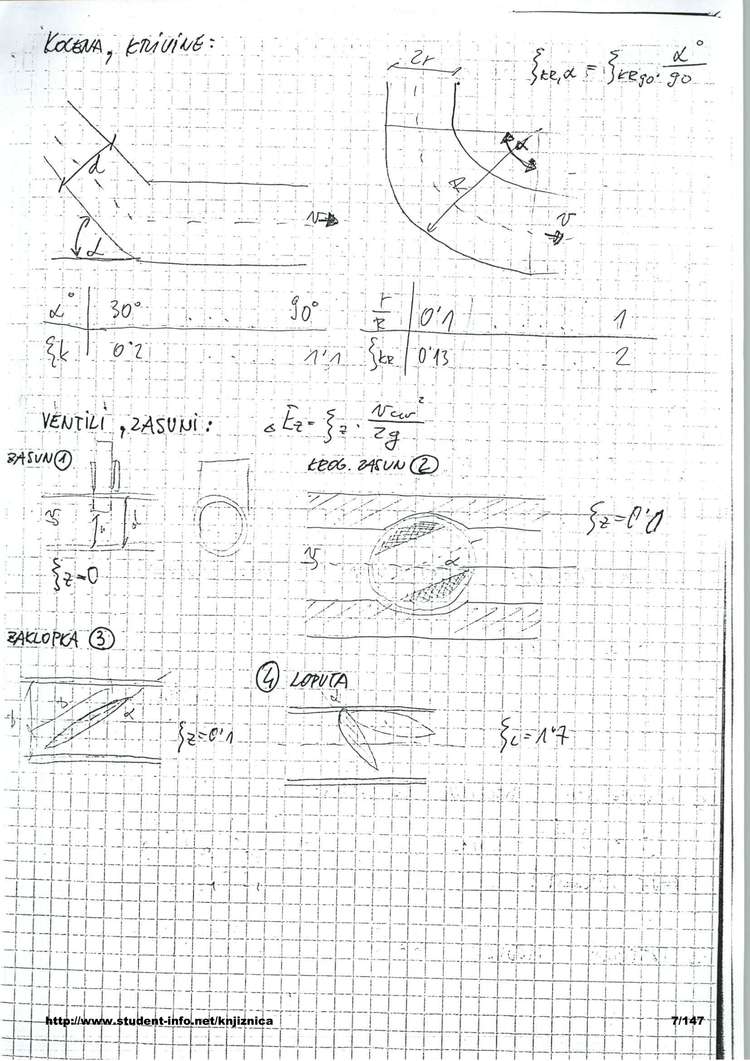 KOLENA, KRIVINE:
2r
ξkr,α = ξkr90° · α°/90
d
α
v
R
α
v
α° | 30° . . . . 90°
ξk | 0'2 . . . . 1'1
r/R | 0'1 . . . . 1
ξkr | 0'13 2
VENTILI, ZASUNI: ΔEz = ξz · v²/2g
ZASUN ①
KROG. ZASUN ②
ξz = 0
α
ξz = 0'0
ZAKLOPKA ③
α
ξz = 0'1
④ LOPUTA
α
ξL = 1'7
http://www.student-info.net/knjiznica
7/147